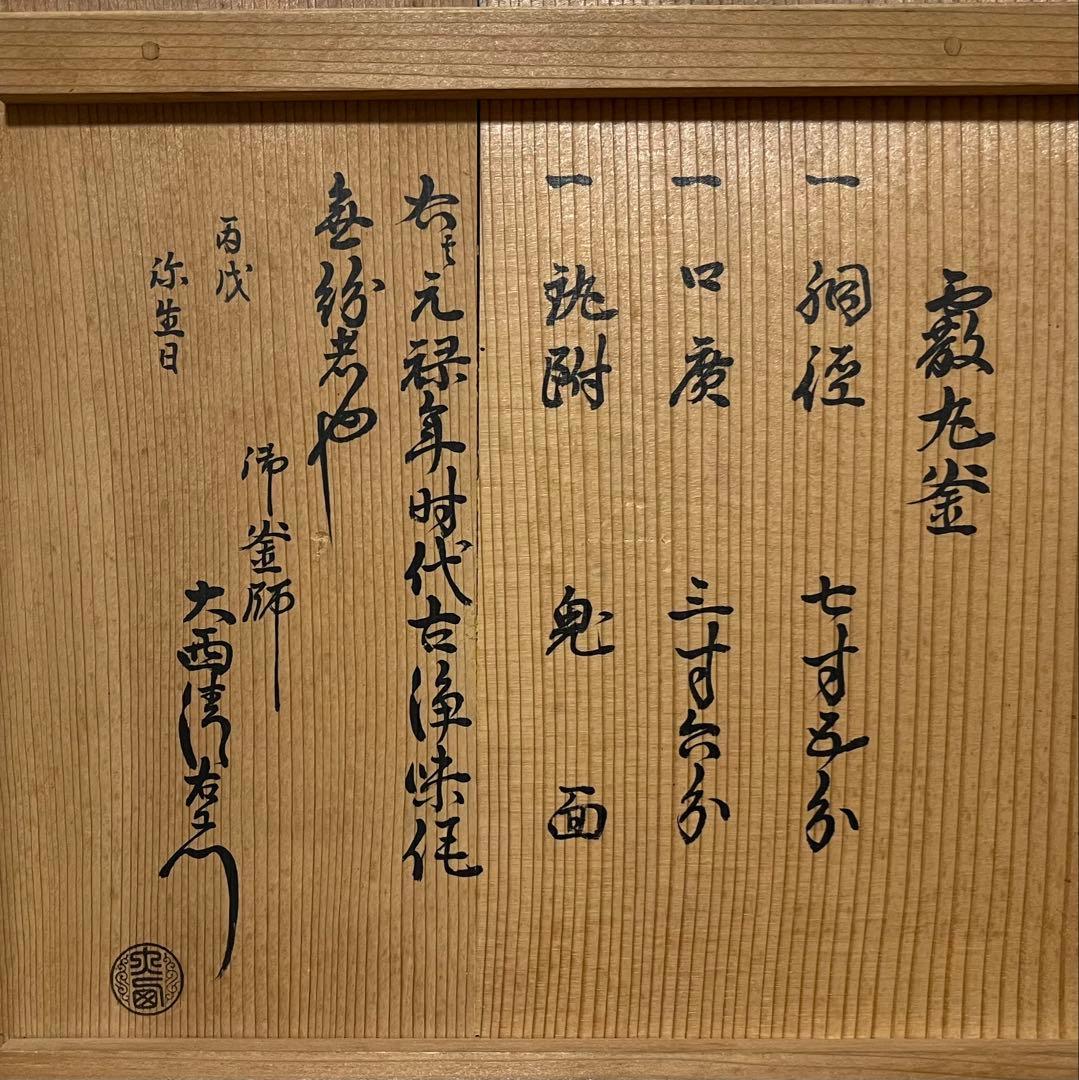 霰丸釜
一 胴径 七寸五分
一 口廣 三寸六分
一 鐶附 鬼面
右者元禄年時代古浄味作
無紛者也
丙戌
弥生日
御釜師
大西清右衛門
大西